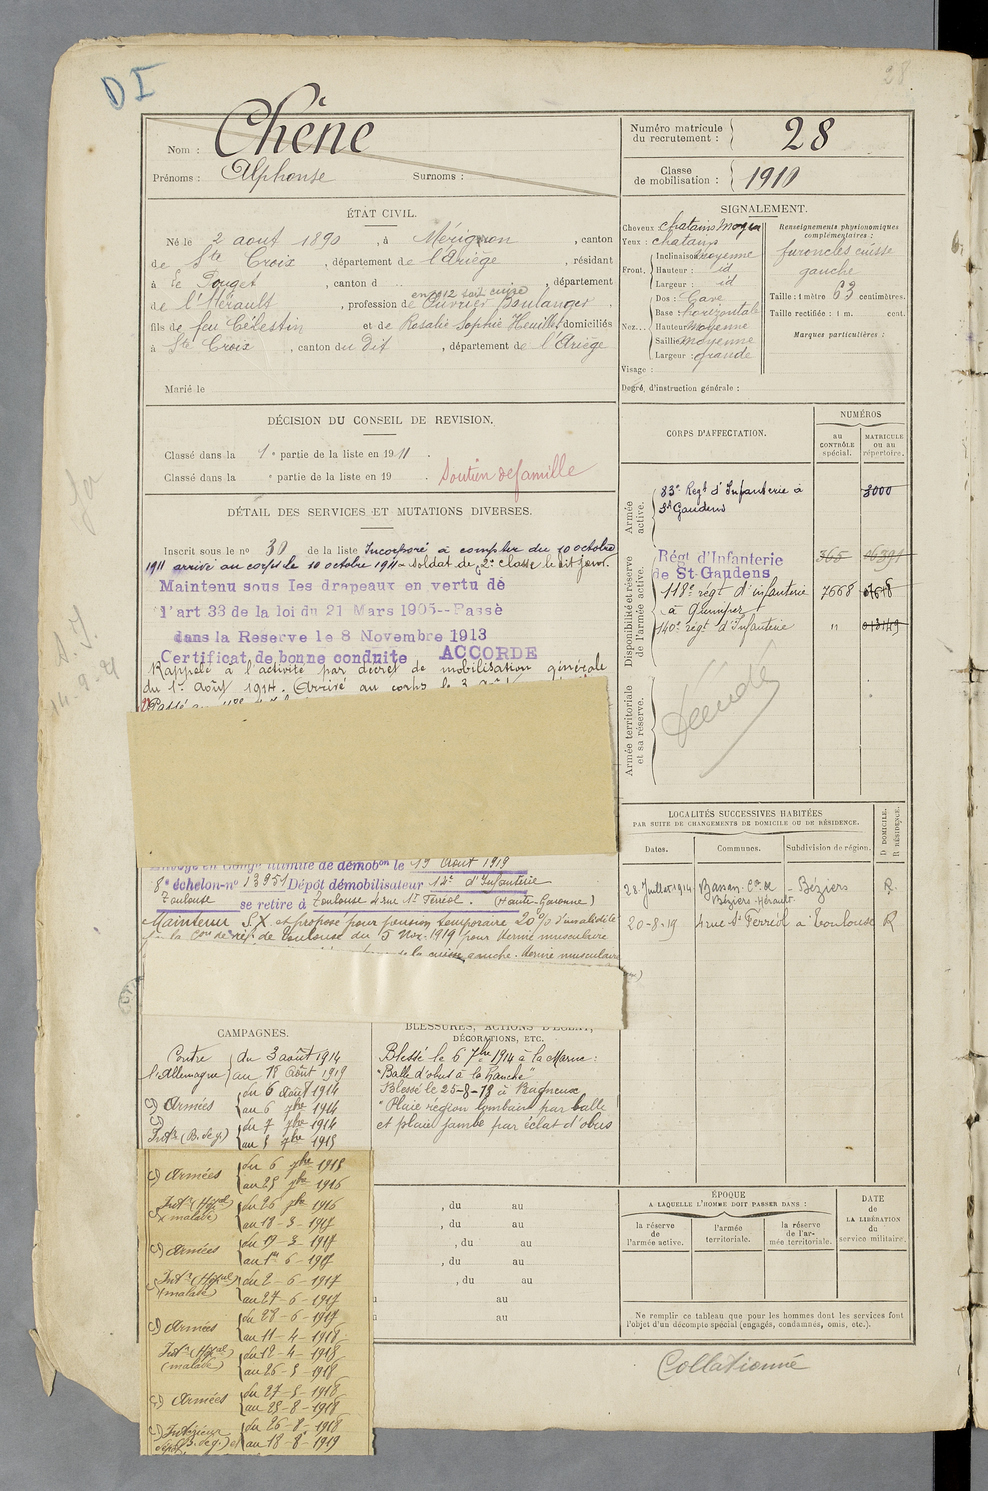 DI
28
Nom : Chêne
Prénoms : Alphonse Surnoms :
Numéro matricule du recrutement : 28
Classe de mobilisation : 1910
ÉTAT CIVIL.
Né le 2 aout 1890, à Mérignon, canton
de Ste Croix, département de l'Ariège, résidant
à Le Pouget, canton d , département
de l'Hérault, profession de Ouvrier Boulanger
en 1912 soit cuire
fils de feu Célestin et de Rosalie Sophie Heuillet, domiciliés
à Ste Croix, canton du dit, département de l'Ariège
Marié le
SIGNALEMENT.
Cheveux chatains moyen
Yeux : chatains
Front. Inclinaison moyenne
Hauteur : id
Largeur : id
Nez... Dos : Cave
Base : horizontale
Hauteur moyenne
Saillie moyenne
Largeur : grande
Visage :
Degré d'instruction générale :
Renseignements physionomiques complémentaires :
furoncles cuisse
gauche
Taille : 1 mètre 63 centimètres.
Taille rectifiée : 1 m. cent.
Marques particulières :
DÉCISION DU CONSEIL DE REVISION.
Classé dans la 1e partie de la liste en 1911.
Classé dans la e partie de la liste en 19 .
Soutien de famille
DÉTAIL DES SERVICES ET MUTATIONS DIVERSES.
Inscrit sous le no 30 de la liste Incorporé à compter du 10 octobre
1911 arrivé au corps le 10 octobre 1911 soldat de 2e classe le dit jour.
Maintenu sous les drapeaux en vertu de
l'art 33 de la loi du 21 Mars 1905--Passé
dans la Reserve le 8 Novembre 1913
Certificat de bonne conduite ACCORDE
Rappelé à l'activité par décret de mobilisation générale
du 1er Août 1914. Arrivé au corps le 3 Août
Passé au 118e
congé illimité de démobon le 19 Aout 1919
8e échelon-no 13951 Dépôt démobilisateur 14e d'Infanterie
Toulouse se retire à Toulouse 4 rue St Ferréol. (Haute-Garonne)
Maintenu S.X. et proposé pour pension temporaire 20% d'invalidité
la Con de réf. de Toulouse du 5 Nov. 1919 pour hernie musculaire
de la cuisse gauche. hernie musculaire
CORPS D'AFFECTATION.
NUMÉROS
AU CONTRÔLE spécial.
MATRICULE ou au répertoire.
Armée active.
83e Regt d'Infanterie à St Gaudens 3000
Disponibilité et réserve de l'armée active.
Régt d'Infanterie de St Gaudens 365 06391
118e régt d'infanterie à Quimper 7668
140e régt d'Infanterie " 013149
Armée territoriale et sa réserve.
LOCALITÉS SUCCESSIVES HABITÉES
PAR SUITE DE CHANGEMENTS DE DOMICILE OU DE RÉSIDENCE.
Dates. Communes. Subdivision de région. D DOMICILE. R RÉSIDENCE.
28 Juillet 1914 Bassan Con de Béziers-Hérault - Béziers R
20-8-19 4 rue St Ferréol à Toulouse R
CAMPAGNES.
Contre l'Allemagne du 3 août 1914
au 18 Août 1919
C) Armées du 6 août 1914
au 6 7bre 1914
Intr (B. de g.) du 7 7bre 1914
au 5 7bre 1915
C) Armées du 6 7bre 1915
au 25 7bre 1916
Intr (Hôpal malade) du 26 7bre 1916
au 18-3-1917
C) Armées du 19-3-1917
au 1er 6-1917
Intr (Hôpal malade) du 2-6-1917
au 27-6-1917
C) Armées du 28-6-1917
au 11-4-1918
Intr (Hôpal malade) du 12-4-1918
au 26-5-1918
C) Armées du 27-5-1918
au 25-8-1918
C) Intérieur (B. de g.) du 26-8-1918
au 18-8-1919
BLESSURES, ACTIONS D'ÉCLAT,
DÉCORATIONS, ETC.
Blessé le 6 7bre 1914 à la Marne :
"Balle d'obus à la hanche"
Blessé le 25-8-18 à Bagneux
"Plaie région lombaire par balle
et plaie jambe par éclat d'obus
, du au
, du au
, du au
, du au
, du au
au
au
ÉPOQUE
A LAQUELLE L'HOMME DOIT PASSER DANS :
la réserve de l'armée active.
l'armée territoriale.
la réserve de l'armée territoriale.
DATE de LA LIBÉRATION du service militaire.
Ne remplir ce tableau que pour les hommes dont les services font
l'objet d'un décompte spécial (engagés, condamnés, omis, etc.).
Collationné